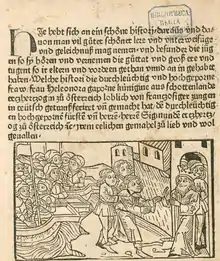 BIBLIOTHECA
Hie hebt sich an ein schöne histori dar auß vnd da
von man vil gůter schöner lere vnd vnterweisũge
vnd geleichnuß mag nemen vnd besunder die jũgen
so sy hörẽn vnd vernemen die gůttat vnd groß ere vnd
tugent so ir eltern vnd vordern gehan vnnd an in gehebt
haben Welche histori die durchleüchtig vnd hochgeporne
fraw. fraw Heleonora geporne künigin auß schottenlande
ertzherczogin zů österreich loblich von franczosischer zungen
in teütsch getranßferiert vñ gemacht hat dẽ durchleüchtig
hochgepornẽ fürstẽ vñ herrẽ herrẽ Sigmund ertzherczog
zů österreich etc irem eelichen gemahel zů lieb vnd wol
geuallen